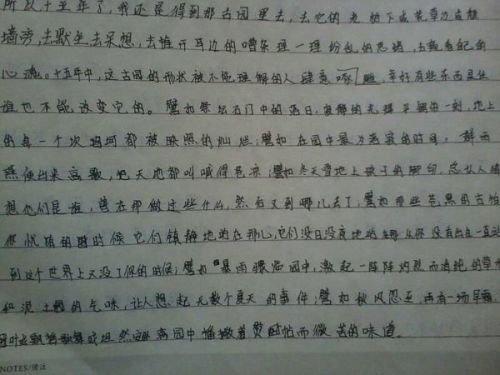 所以十五年了,我还是得到那古园里去,去它的老树下或荒草边或颓
墙旁,去默坐去呆想,去推开耳边的嘈杂理一理纷乱的思绪,去窥看自己的
心魂。十五年中,这古园的形状被不能理解的人肆意啄雕,幸好有些东西是任
谁也不能改变它的。譬如祭坛石门中的落日,寂静的光辉平铺的一刻,地上
的每一个坎坷都被映照的灿烂;譬如在园中最为落寞的时间,群雨
燕便出来高歌,把天地都叫喊得苍凉;譬如冬天雪地上孩子的脚印,总让人猜
想他们是谁,曾在那做过些什么,然后又到哪儿去了;譬如那些苍黑的古柏
你忧郁的时候它们镇静地站在那儿,它们没日没夜地站 你没有出生一直站
到这个世界上又没了你的时候;譬如暴雨骤临园中,激起一阵阵灼烈而清纯的草木
和泥土的气味,让人想起无数个夏天的事件;譬如秋风忽至,再有一场早霜
叶或飘摇歌舞或坦然安 园中播散着熨帖而微苦的味道。
NOTES/备注